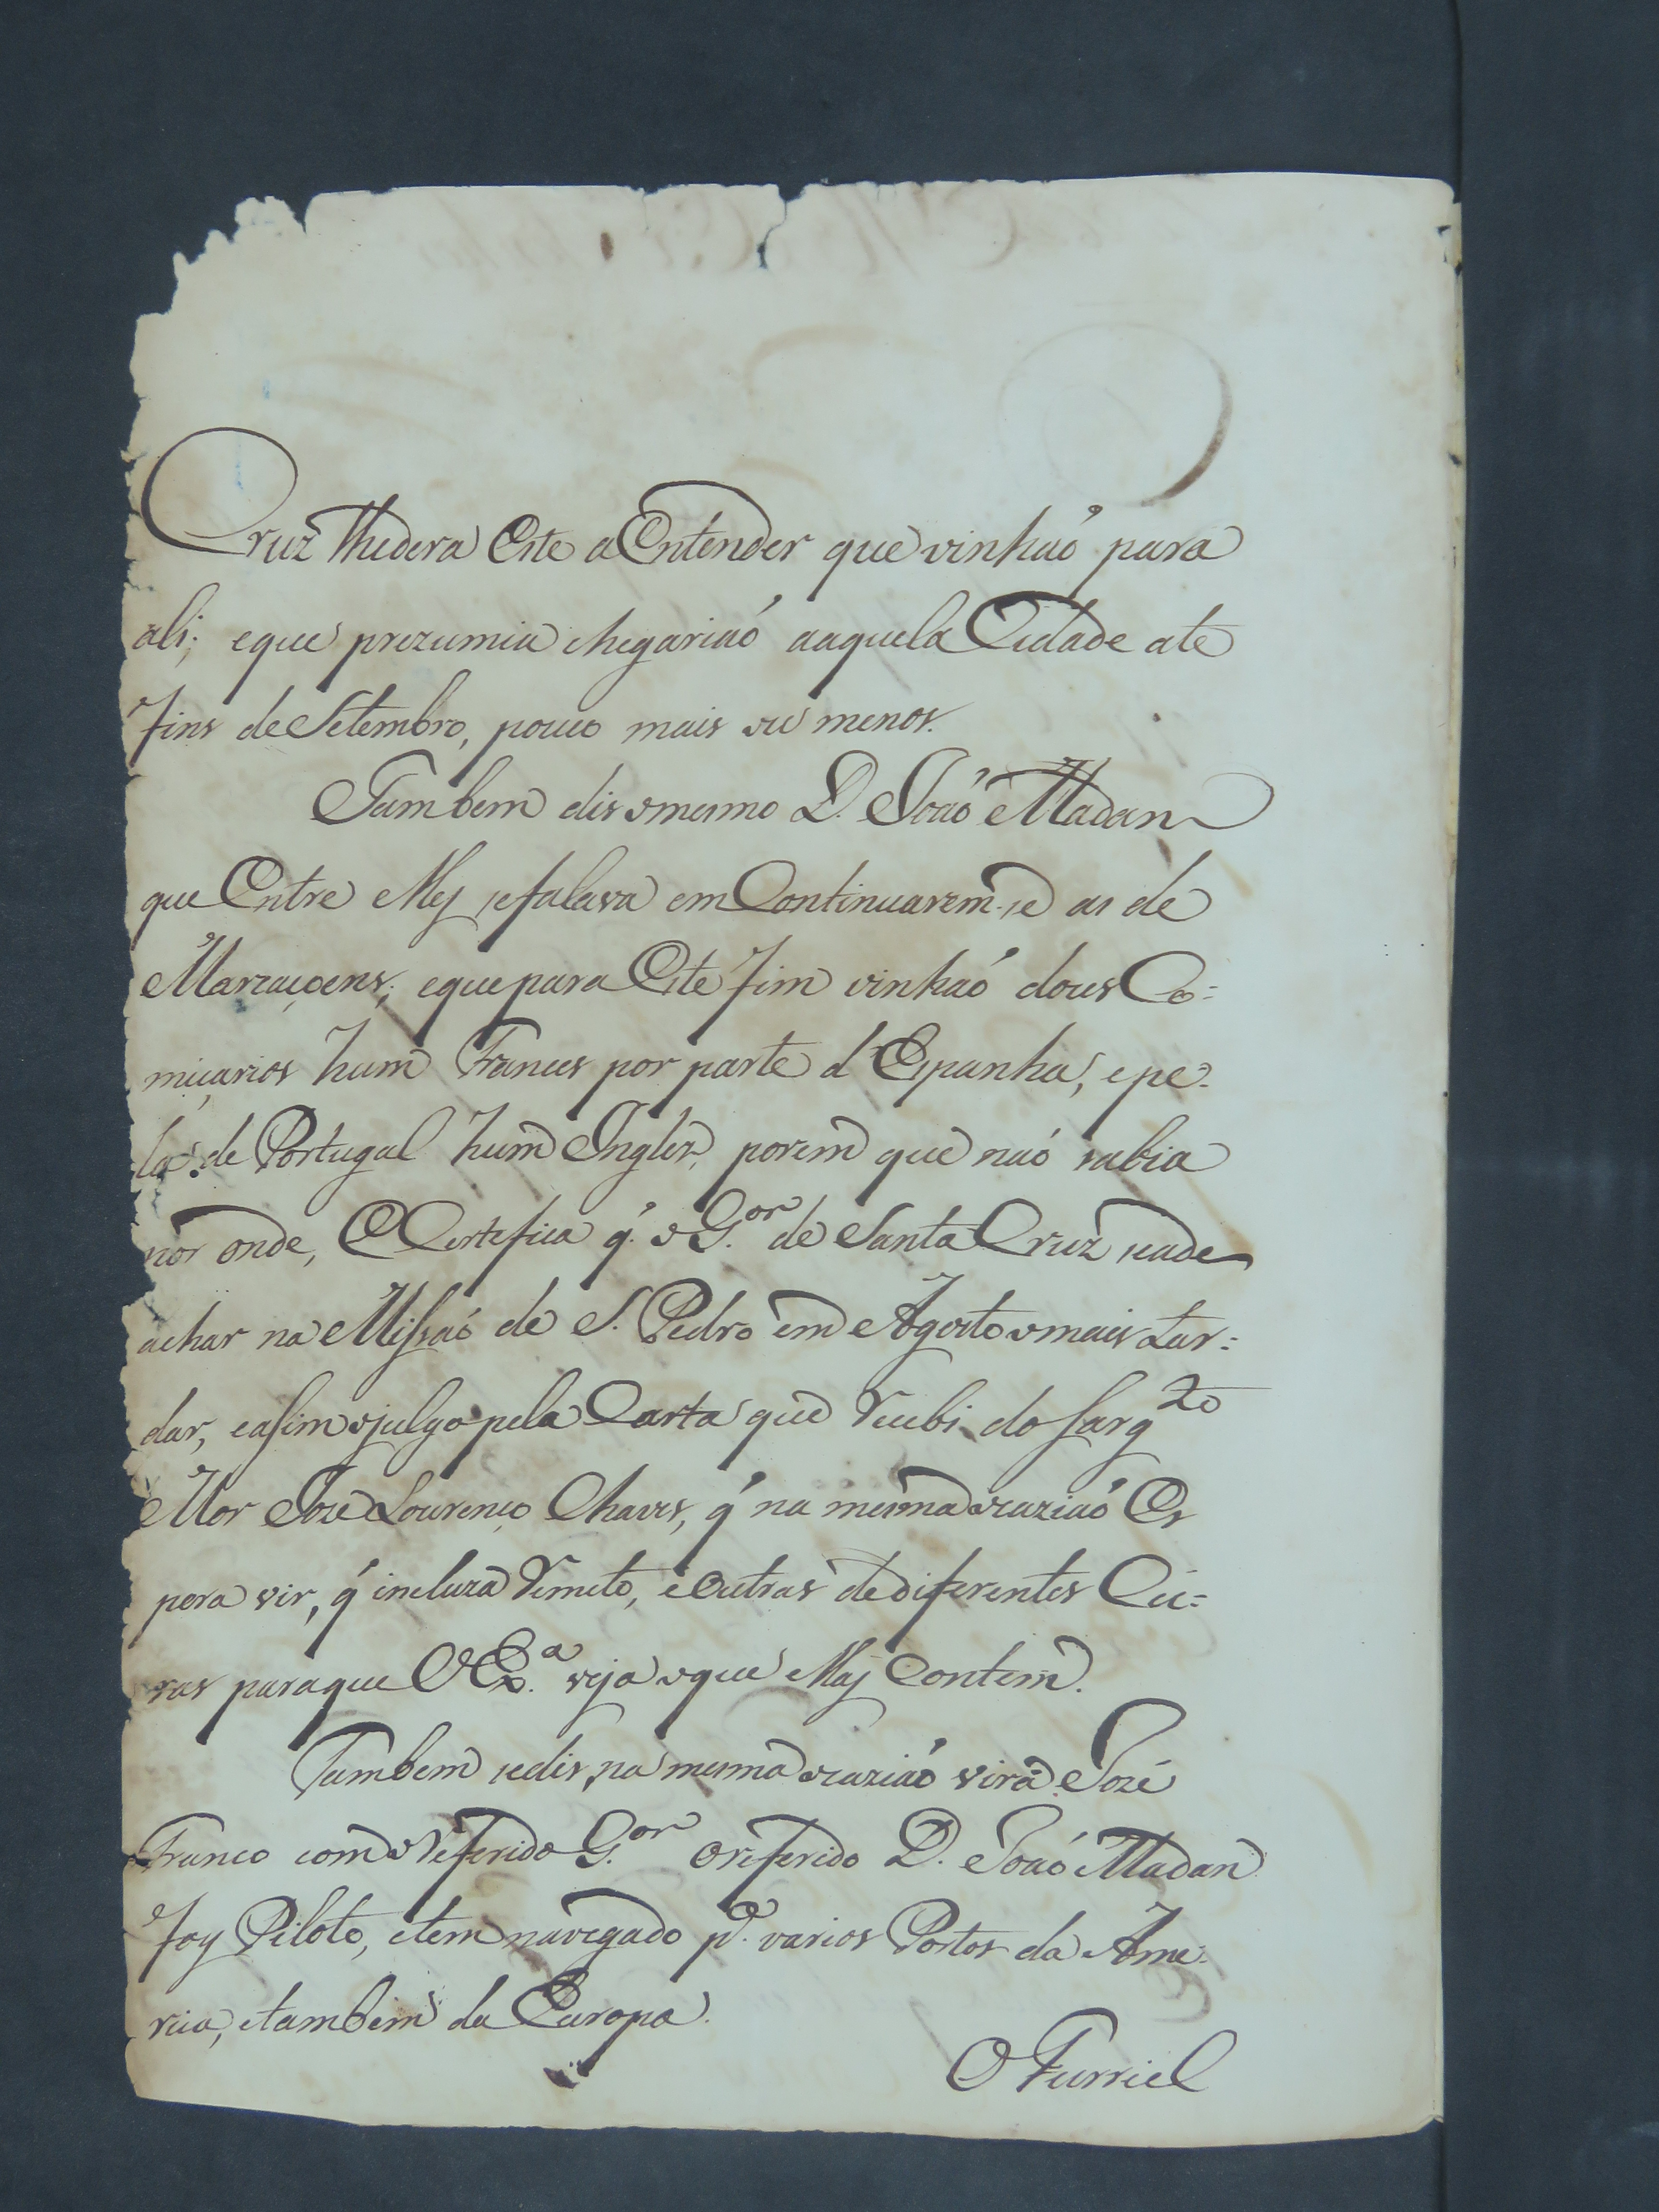 Cruz lhedera Este a Entender que vinhaó para
ali; eque prezumia chegariaó aaquela Cidade até
fins de Setembro, pouco mais ou menos.
Tambem dis omesmo D. Joaó Madan
que Entre elles sefalava em Continuarem-se as de
Marzaçoens; eque para Este fim vinhaó dous Co=
miçarios hum Frances por parte d'Espanha, e pe-
la de Portugal hum Ingles, porem que naó sabia
por onde, E Certefica q. o G.or de Santa Cruz seade
achar na Missaó de S. Pedro em Agosto omais tar=
dar, easim ojulgo pela Carta que Recebi do Sarg.to
Mor Jozé Lourenço Chaves, q' na mesma ocaziaó Es
pera vir, q' incluza Remeto, e Outras dediferentes Cu=
ras paraque V Ex.a veja oque ellas Contem.
Tambem sedis, na mesma ocaziaó virá Jozé
Franco com o Referido G.or O referido D. Joaó Madan
foy Piloto, etem navegado p.a varios Portos da Ame-
rica, etambem da Europa.
O Furriel